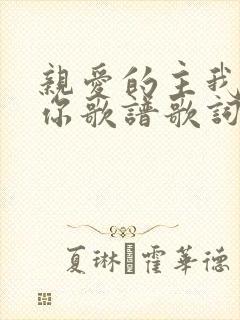 親愛的主我
你歌譜歌詞
夏琳 霍華德